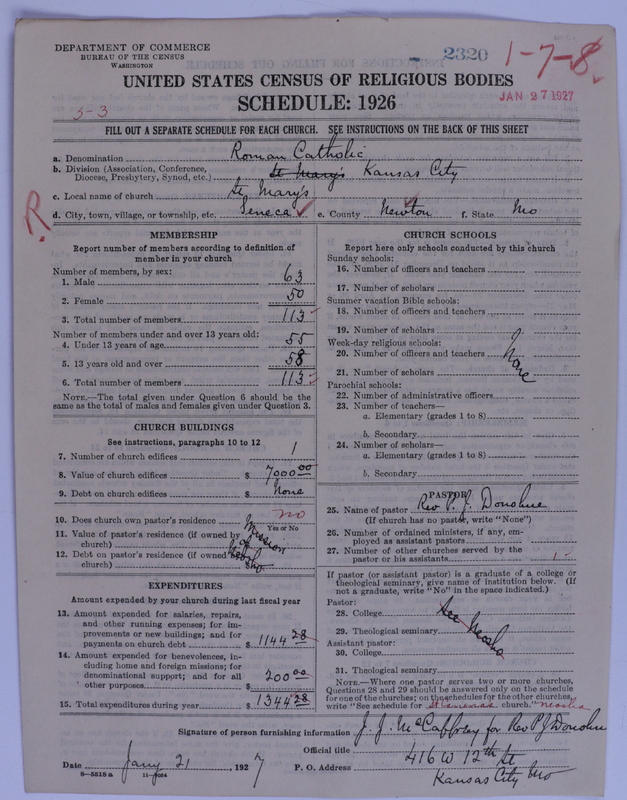 DEPARTMENT OF COMMERCE
BUREAU OF THE CENSUS
WASHINGTON
2320
1-7-8
JAN 27 1927
UNITED STATES CENSUS OF RELIGIOUS BODIES
SCHEDULE: 1926
5-3
FILL OUT A SEPARATE SCHEDULE FOR EACH CHURCH. SEE INSTRUCTIONS ON THE BACK OF THIS SHEET
a. Denomination Roman Catholic
b. Division (Association, Conference, Diocese, Presbytery, Synod, etc.) St Mary's Kansas City
c. Local name of church St Mary's
d. City, town, village, or township, etc. Seneca e. County Newton f. State Mo
R.
MEMBERSHIP
Report number of members according to definition of
member in your church
Number of members, by sex:
1. Male 63
2. Female 50
3. Total number of members 113
Number of members under and over 13 years old:
4. Under 13 years of age 55
5. 13 years old and over 58
6. Total number of members 113
NOTE.—The total given under Question 6 should be
same as the total of males and females given under Question 3.
CHURCH BUILDINGS
See instructions, paragraphs 10 to 12
7. Number of church edifices 1
8. Value of church edifices $ 7000.00
9. Debt on church edifices $ None
10. Does church own pastor's residence no
Yes or No
11. Value of pastor's residence (if owned by
church) $ Mission of
12. Debt on pastor's residence (if owned by
church) $ Neosho
EXPENDITURES
Amount expended by your church during last fiscal year
13. Amount expended for salaries, repairs,
and other running expenses; for im-
provements or new buildings; and for
payments on church debt $ 1144 28
14. Amount expended for benevolences, in-
cluding home and foreign missions; for
denominational support; and for all
other purposes $ 200 00
15. Total expenditures during year $ 1344 28
CHURCH SCHOOLS
Report here only schools conducted by this church
Sunday schools:
16. Number of officers and teachers
17. Number of scholars
Summer vacation Bible schools:
18. Number of officers and teachers
19. Number of scholars
Week-day religious schools:
20. Number of officers and teachers None
21. Number of scholars
Parochial schools:
22. Number of administrative officers
23. Number of teachers—
a. Elementary (grades 1 to 8)
b. Secondary
24. Number of scholars—
a. Elementary (grades 1 to 8)
b. Secondary
PASTOR
25. Name of pastor Rev P. J. Donohue
(If church has no pastor, write "None")
26. Number of ordained ministers, if any, em-
ployed as assistant pastors
27. Number of other churches served by the
pastor or his assistants 1
If pastor (or assistant pastor) is a graduate of a college or
theological seminary, give name of institution below. (If
not a graduate, write "No" in the space indicated.)
Pastor:
28. College See Neosho
29. Theological seminary
Assistant pastor:
30. College
31. Theological seminary
NOTE.—Where one pastor serves two or more churches,
Questions 28 and 29 should be answered only on the schedule
for one of the churches; on the schedules for the other churches,
write "See schedule for church." Neosho
Signature of person furnishing information J. J. McCaffrey for Rev P J Donohue
Official title
Date Jany 21, 1927
P. O. Address 416 W 12th St
Kansas City Mo
8—5518 a